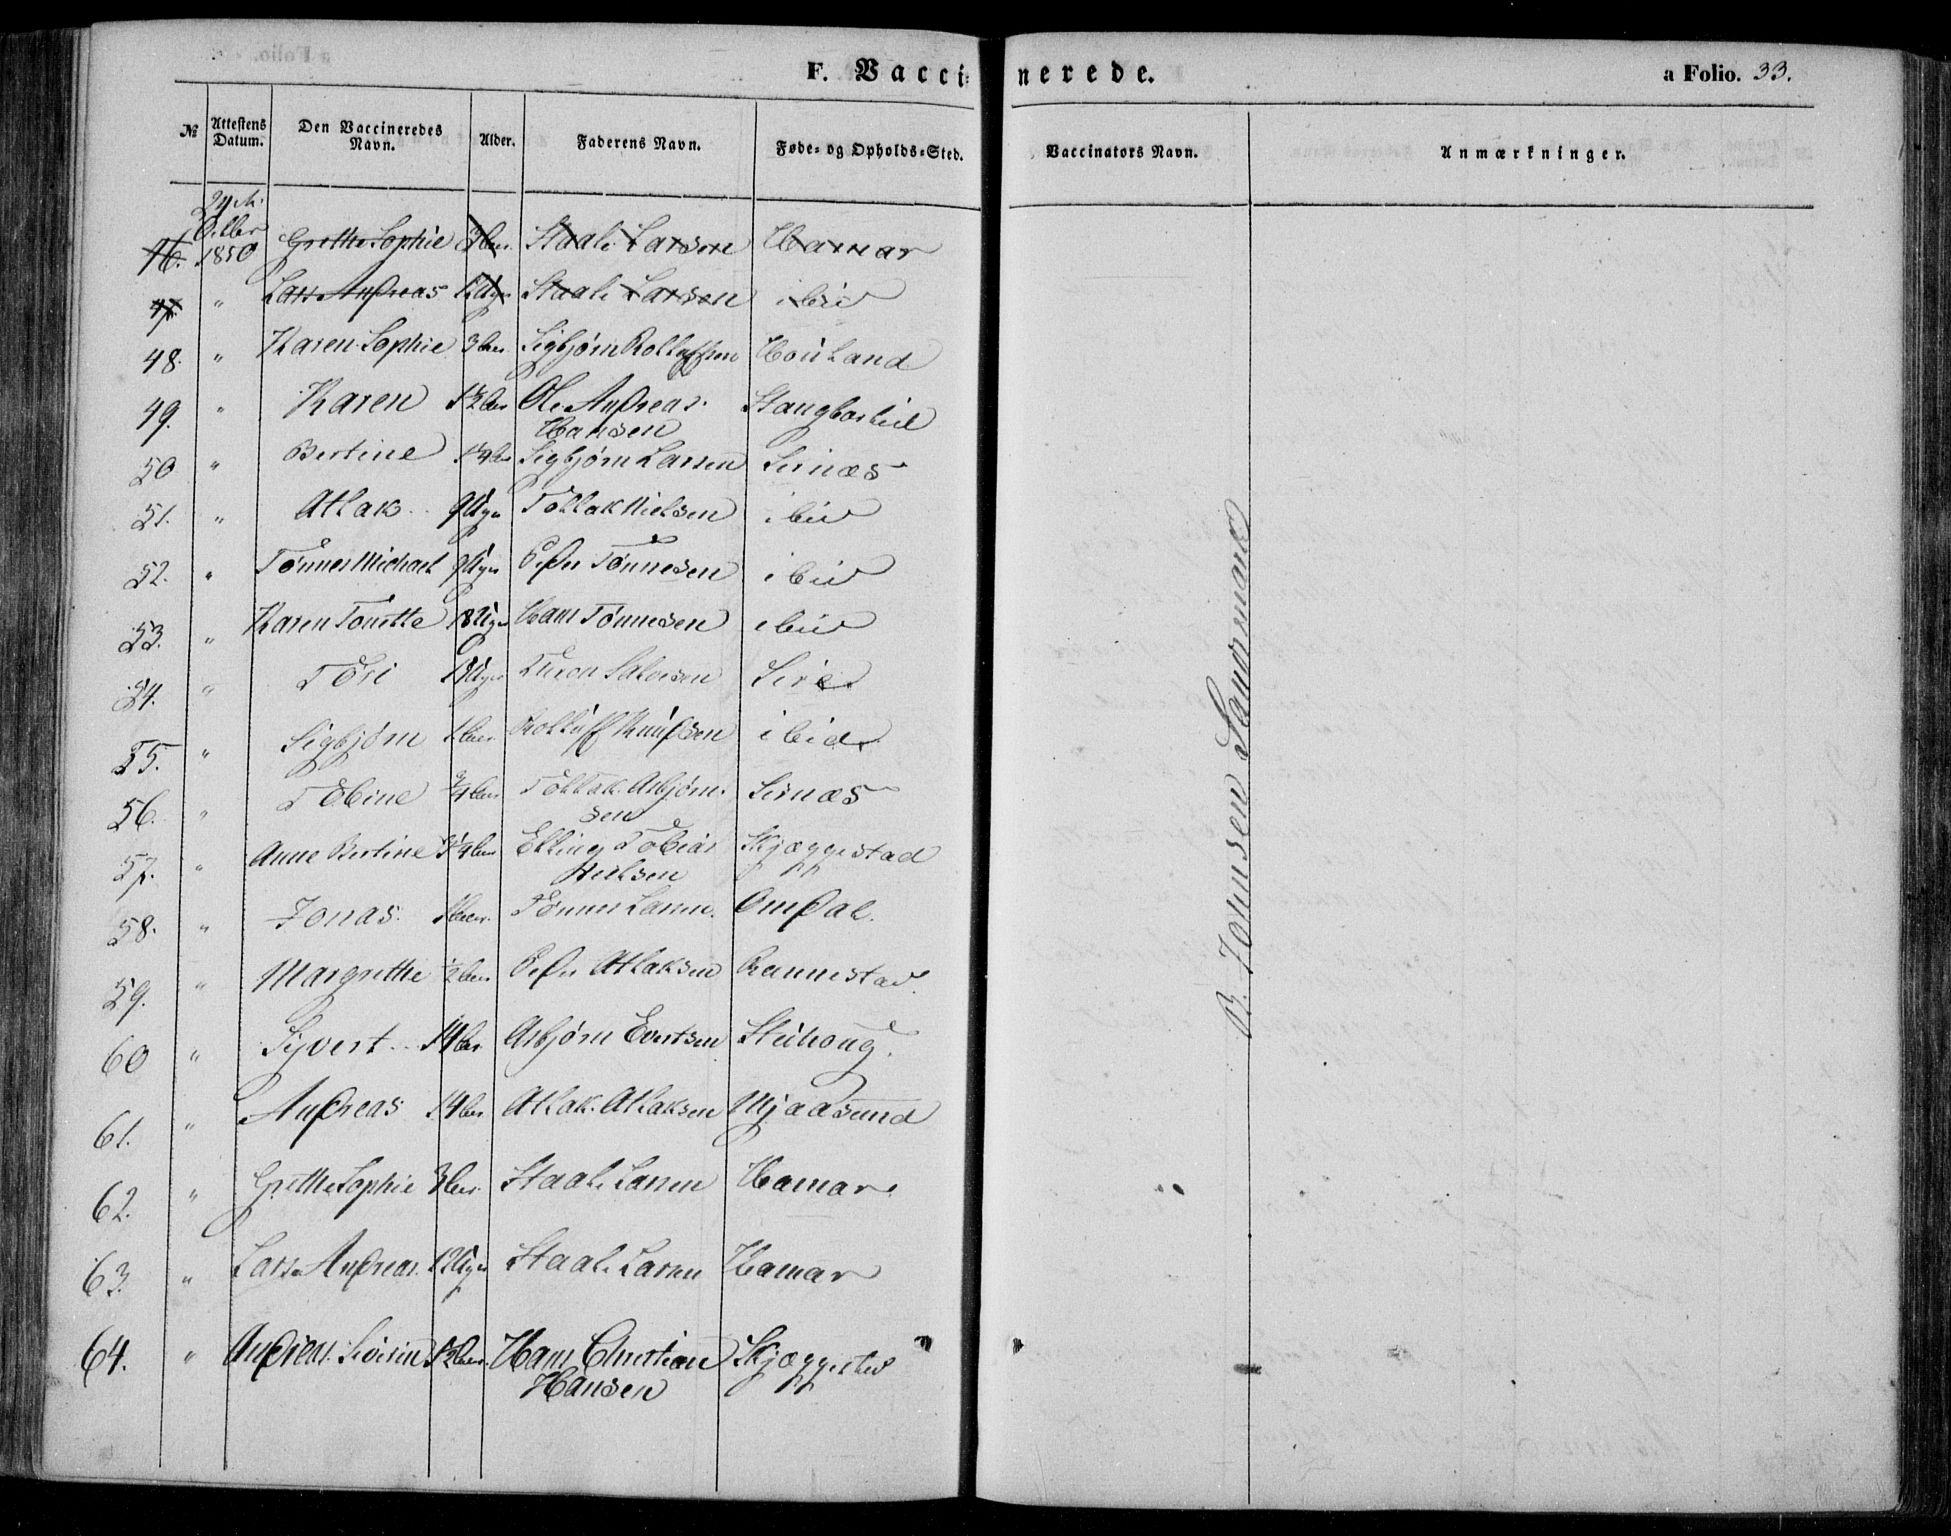 F. Vaccinerede.
a Folio. 33.
№ Attestens Datum. Den Vaccineredes Navn. Alder. Faderens Navn. Føde- og Opholds-Sted. Vaccinators Navn. Anmærkninger.
46. 1850 Grethe Sophie Staale Larsen Hamar
47. " Lars Andreas Staale Larsen ibid
48. " Karen Sophie Sigbjørn Rolluffsen Houland
49. " Karen Ole Andreas
Hansen
50 " Bertine Sigbjørn Larsen Sirnæs
51. " Atlak 9 Uger Tollak Nielsen ibid
52. " Tønnes Michael 9 Uger Peder Tønnesen ibid
53. " Karen Tonette 18 Uger Hans Tønnesen ibid
24. " Tori Salvesen Sire
55. " Sigbjørn Rolluff Knudsen ibid
56. " Tobine Tollak Asbjørn-
sen Sirnæs
57. " Anne Bertine Elling Tobias Skjæggestad
Nielsen
58. " Jonas Tønnes Larsen Omdal.
59. " Margrethe Peder Atlaksen Rannestad
60 " Sijvert Asbjørn Evertsen
61. " Andreas Atlak Atlaksen Mjaasund
62. " Grethe Sophie Staale Larsen Hamar
63. " Lars Andreas 12 Uger Staale Larsen Hamar
64. " Andreas Hans Christian Skjæggestad
Hansen
B. Johnsen Sandsmark